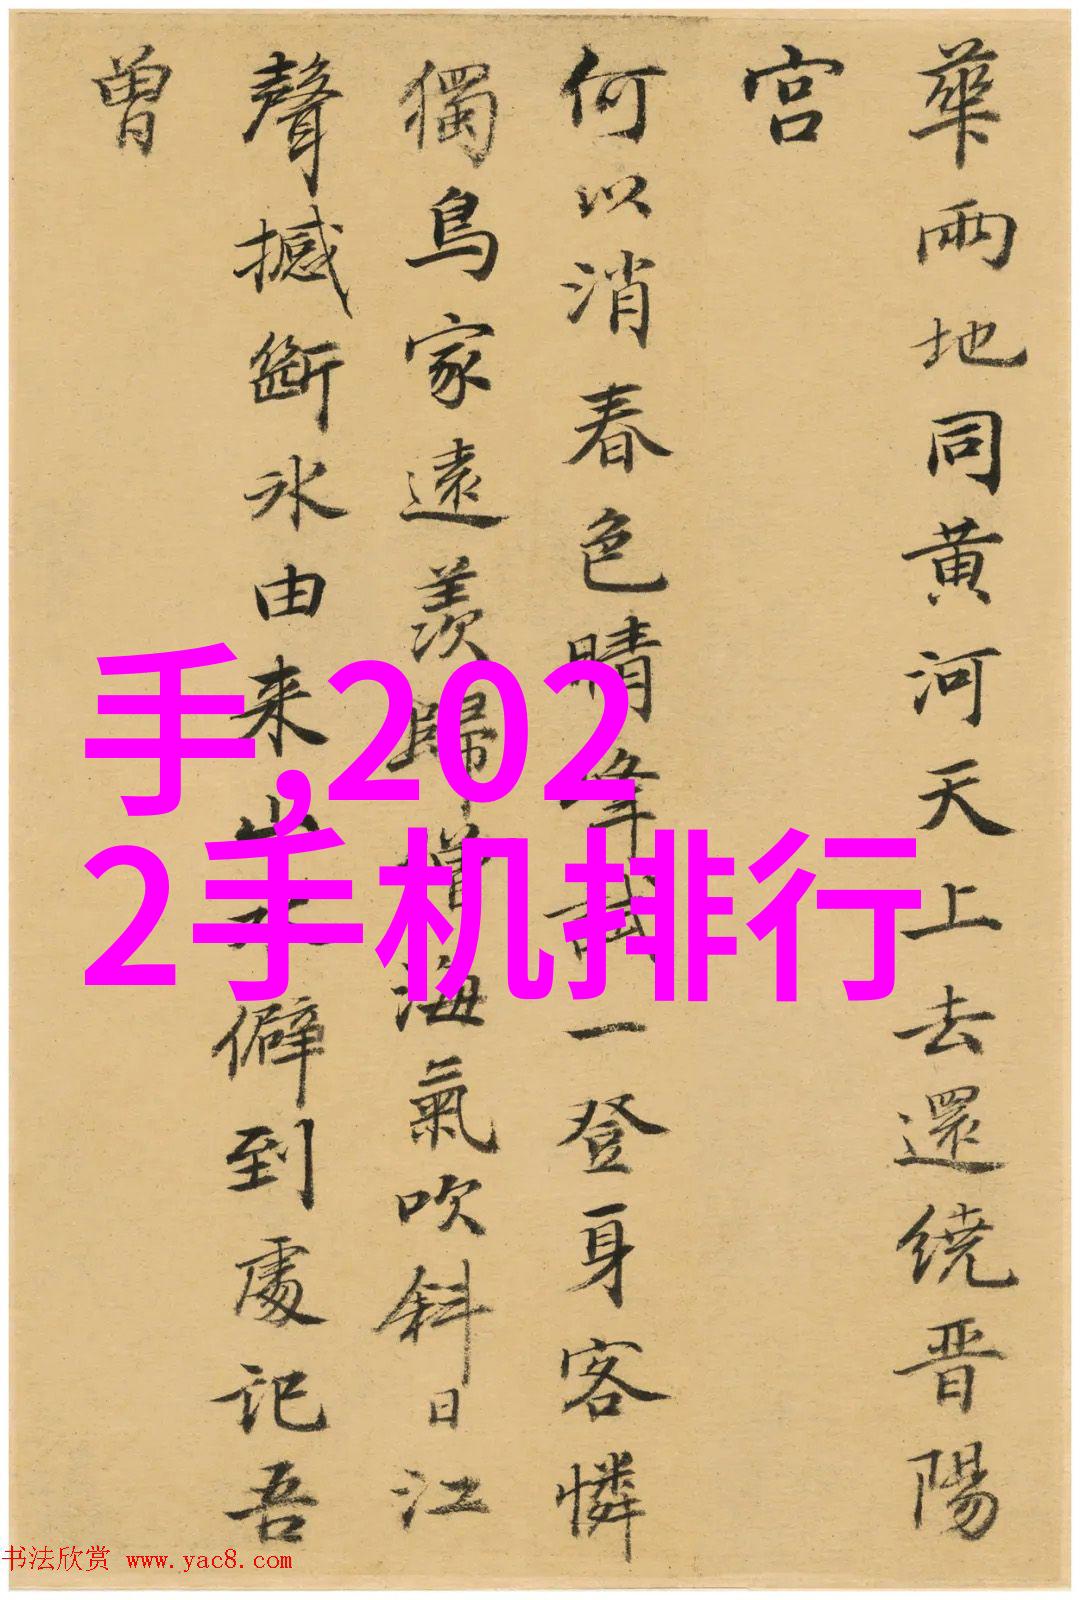 華兩地同黄河天上去還繞晋陽
宫
何以消春色晴峰試一登身客憐
獨鳥家遠羡歸僧海氣吹斜日江
聲撼斷冰由来山僻到處記吾
曾
手,202
2手机排行
书法欣赏 www.yac8.com